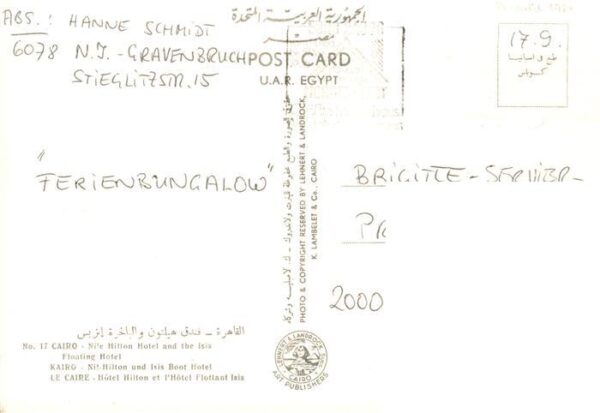 ABS.: HANNE SCHMIDT
6078 N.J.-GRAVENBRUCH
STIEGLITZSTR. 15
الجمهورية العربية المتحدة
مصر
POST CARD
U.A.R. EGYPT
17.9.
طبع في اسبانيا
"FERIENBUNGALOW"
BRIGITTE-SERVICE-
PR
2000
PHOTO & COPYRIGHT RESERVED BY LEHNERT & LANDROCK,
K. LAMBELET & Co., CAIRO
القاهرة - فندق هيلتون والباخرة إيزيس
No. 17 CAIRO - Nile Hilton Hotel and the Isis
Floating Hotel
KAIRO - Nil-Hilton und Isis Boot Hotel
LE CAIRE - Hôtel Hilton et l'Hôtel Flottant Isis
LEHNERT & LANDROCK, SUCC.
CAIRO
ART PUBLISHERS